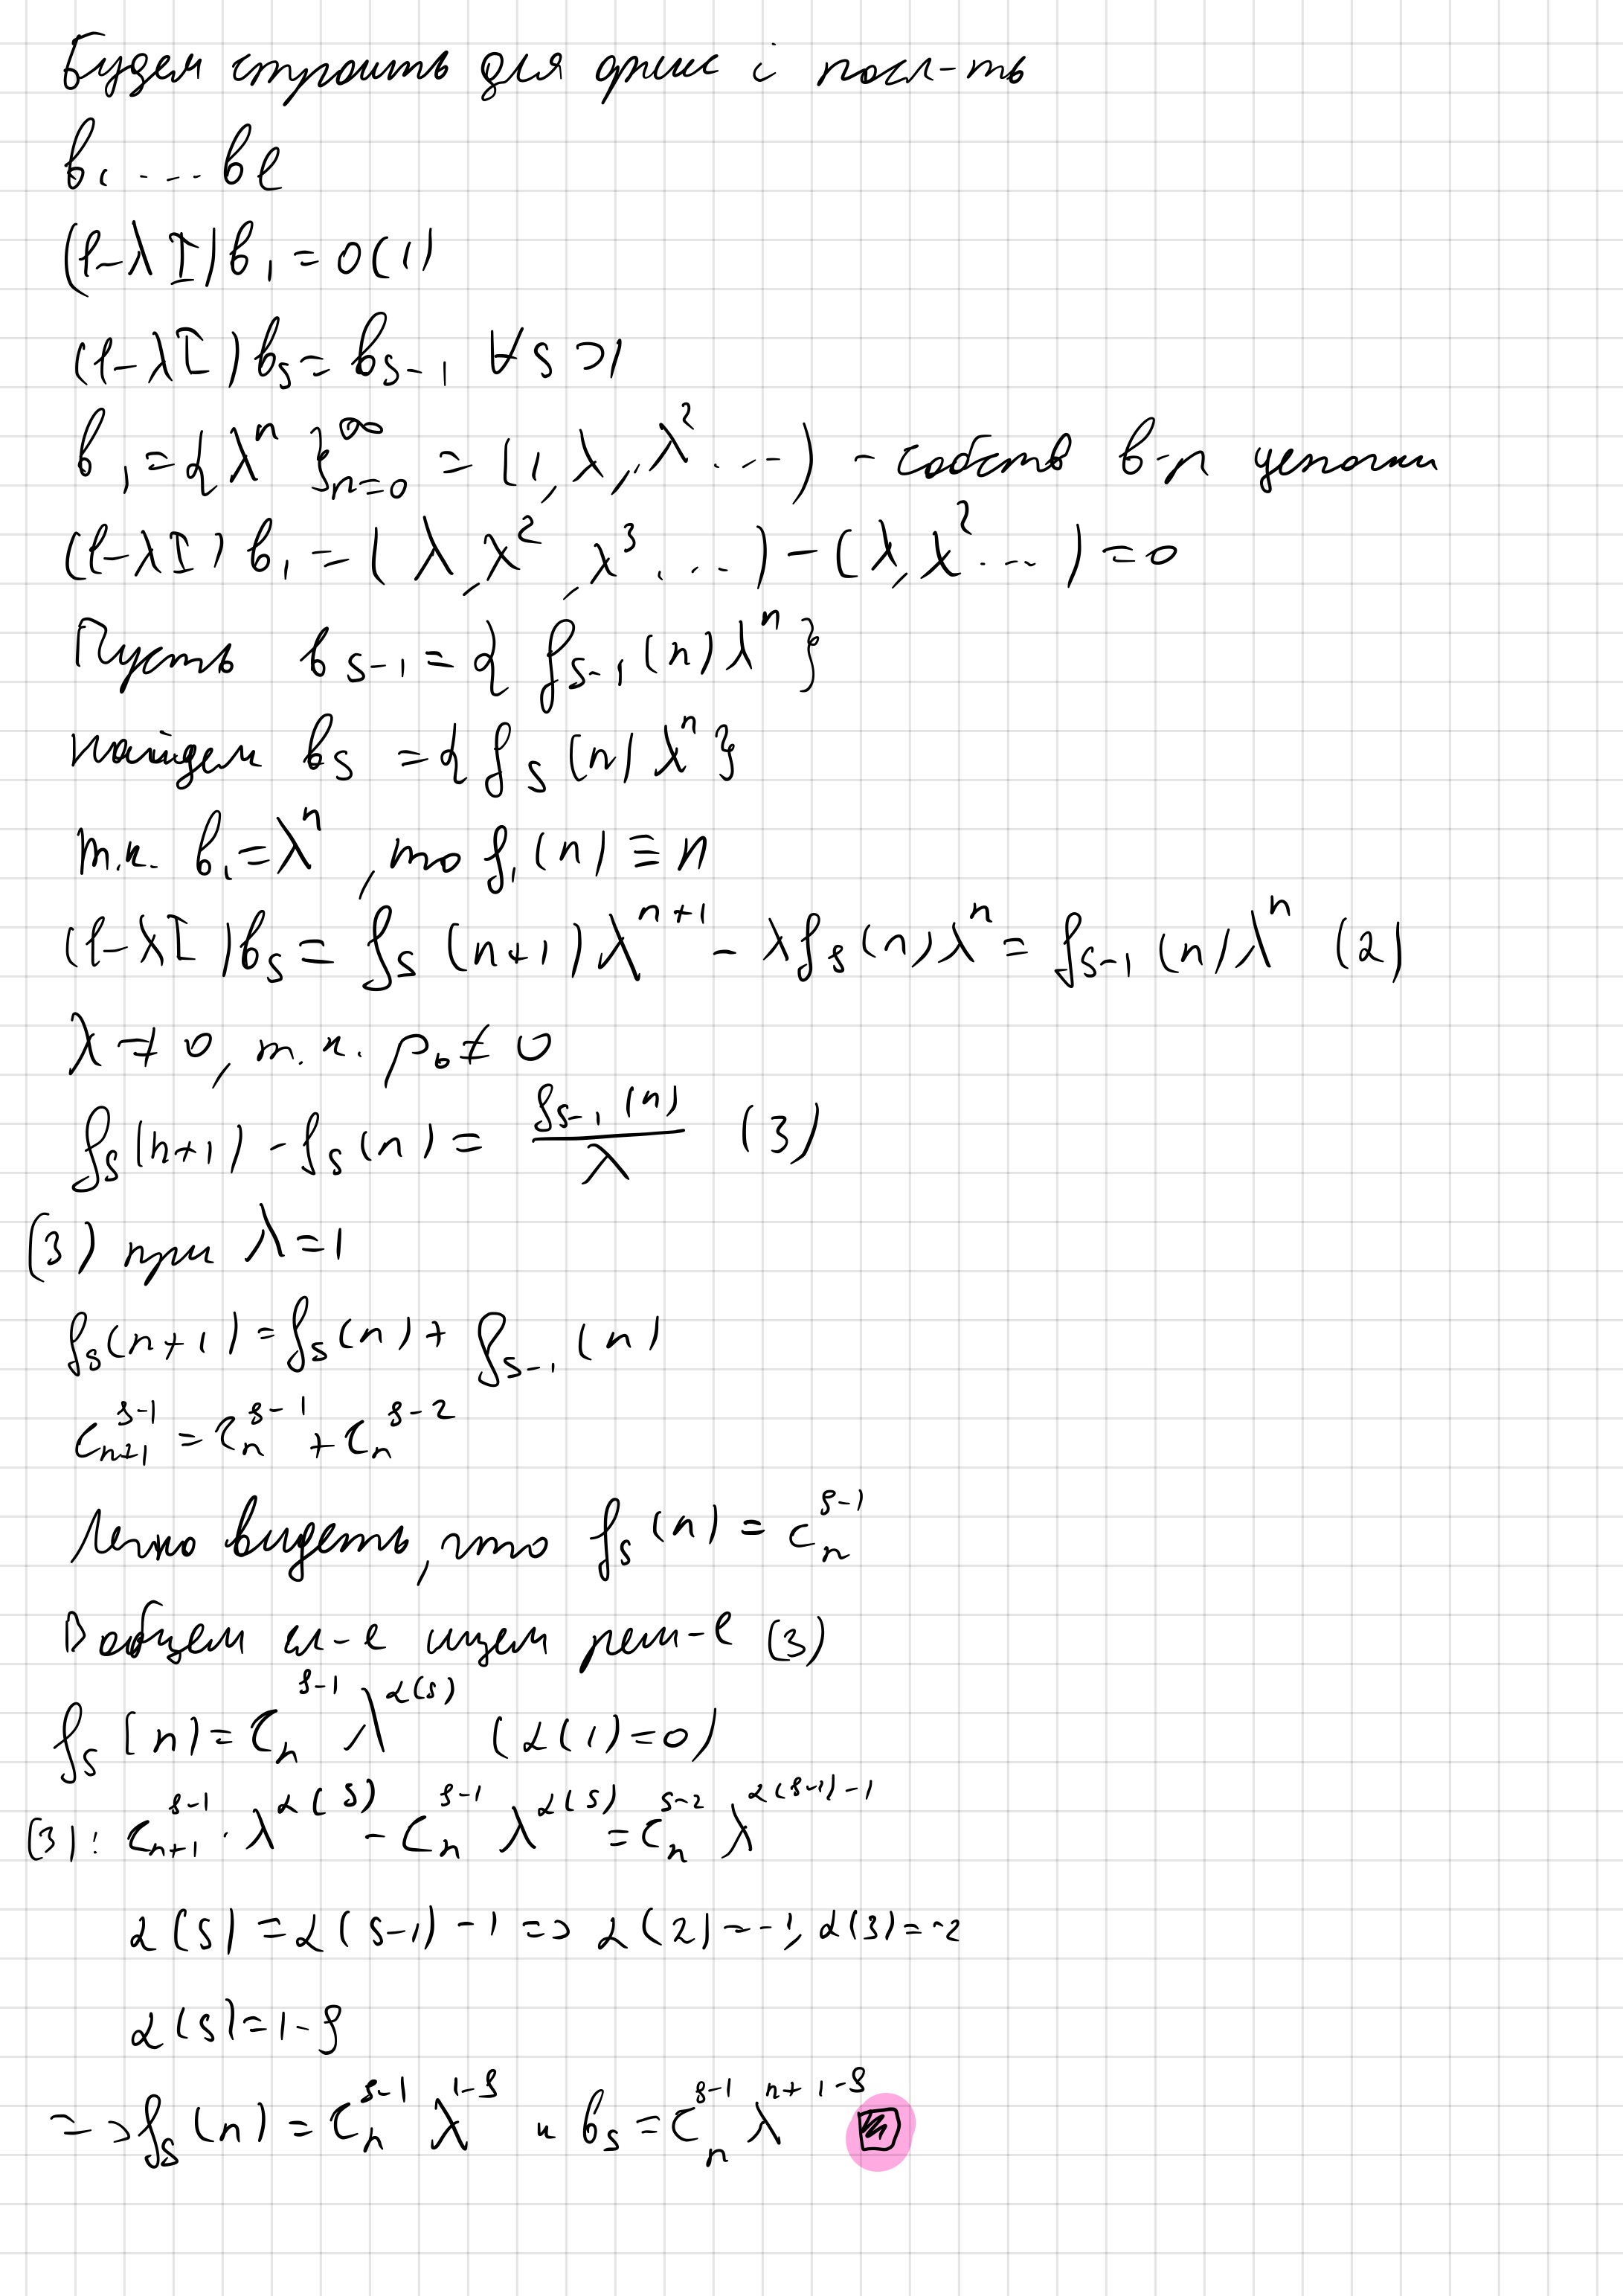 Будем строить для фикс i посл-ть
b₁ ... b_l
(l-λI)b₁ = 0 (1)
(l-λI)b_s = b_{s-1} ∀s>1
b₁ = {λⁿ}_{n=0}^∞ = (1, λ, λ² ...) - собств в-р цепочки
(l-λI)b₁ = (λ, λ², λ³, ...) - (λ, λ² ...) = 0
Пусть b_{s-1} = {f_{s-1}(n)λⁿ}
найдем b_s = {f_s(n)λⁿ}
т.к. b₁ = λⁿ, то f₁(n) ≡ n
(l-λI)b_s = f_s(n+1)λ^{n+1} - λf_s(n)λⁿ = f_{s-1}(n)λⁿ (2)
λ ≠ 0, т.к. p₀ ≠ 0
f_s(n+1) - f_s(n) = f_{s-1}(n)/λ (3)
(3) при λ = 1
f_s(n+1) = f_s(n) + f_{s-1}(n)
C_{n+1}^{s-1} = C_n^{s-1} + C_n^{s-2}
Легко видеть, что f_s(n) = C_n^{s-1}
В общем сл-е ищем реш-е (3)
f_s(n) = C_n^{s-1} λ^{α(s)} (α(1)=0)
(3): C_{n+1}^{s-1} · λ^{α(s)} - C_n^{s-1} λ^{α(s)} = C_n^{s-2} λ^{α(s-1)-1}
α(s) = α(s-1) - 1 => α(2) = -1, α(3) = -2
α(s) = 1-s
=> f_s(n) = C_n^{s-1} λ^{1-s} и b_s = C_n^{s-1} λ^{n+1-s}